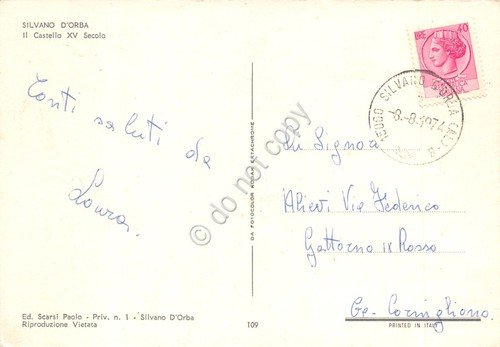 SILVANO D'ORBA
Il Castello XV Secolo
Tanti saluti da
Laura
Ed. Scarsi Paolo - Priv. n. 1 - Silvano D'Orba
Riproduzione Vietata
109
DA FOTOCOLOR KODAK EKTACHROME
LIRE 40
SILVANO D'ORBA (AL)
8-8-1974
Signori
Alieri Via Federico
Gattorno 12 Rosso
Ge. Cornigliano
PRINTED IN ITALY
do not copy